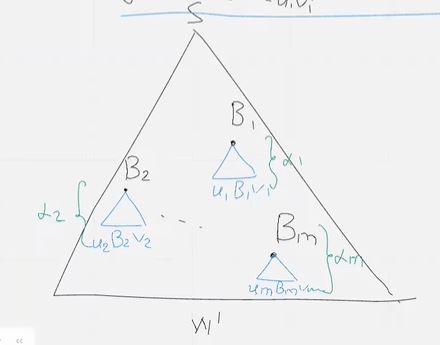 uᵢvᵢ
S
B₁
α₁
u₁B₁v₁
B₂
α₂
u₂B₂v₂
. . .
Bm
αm
umBmvm
W'